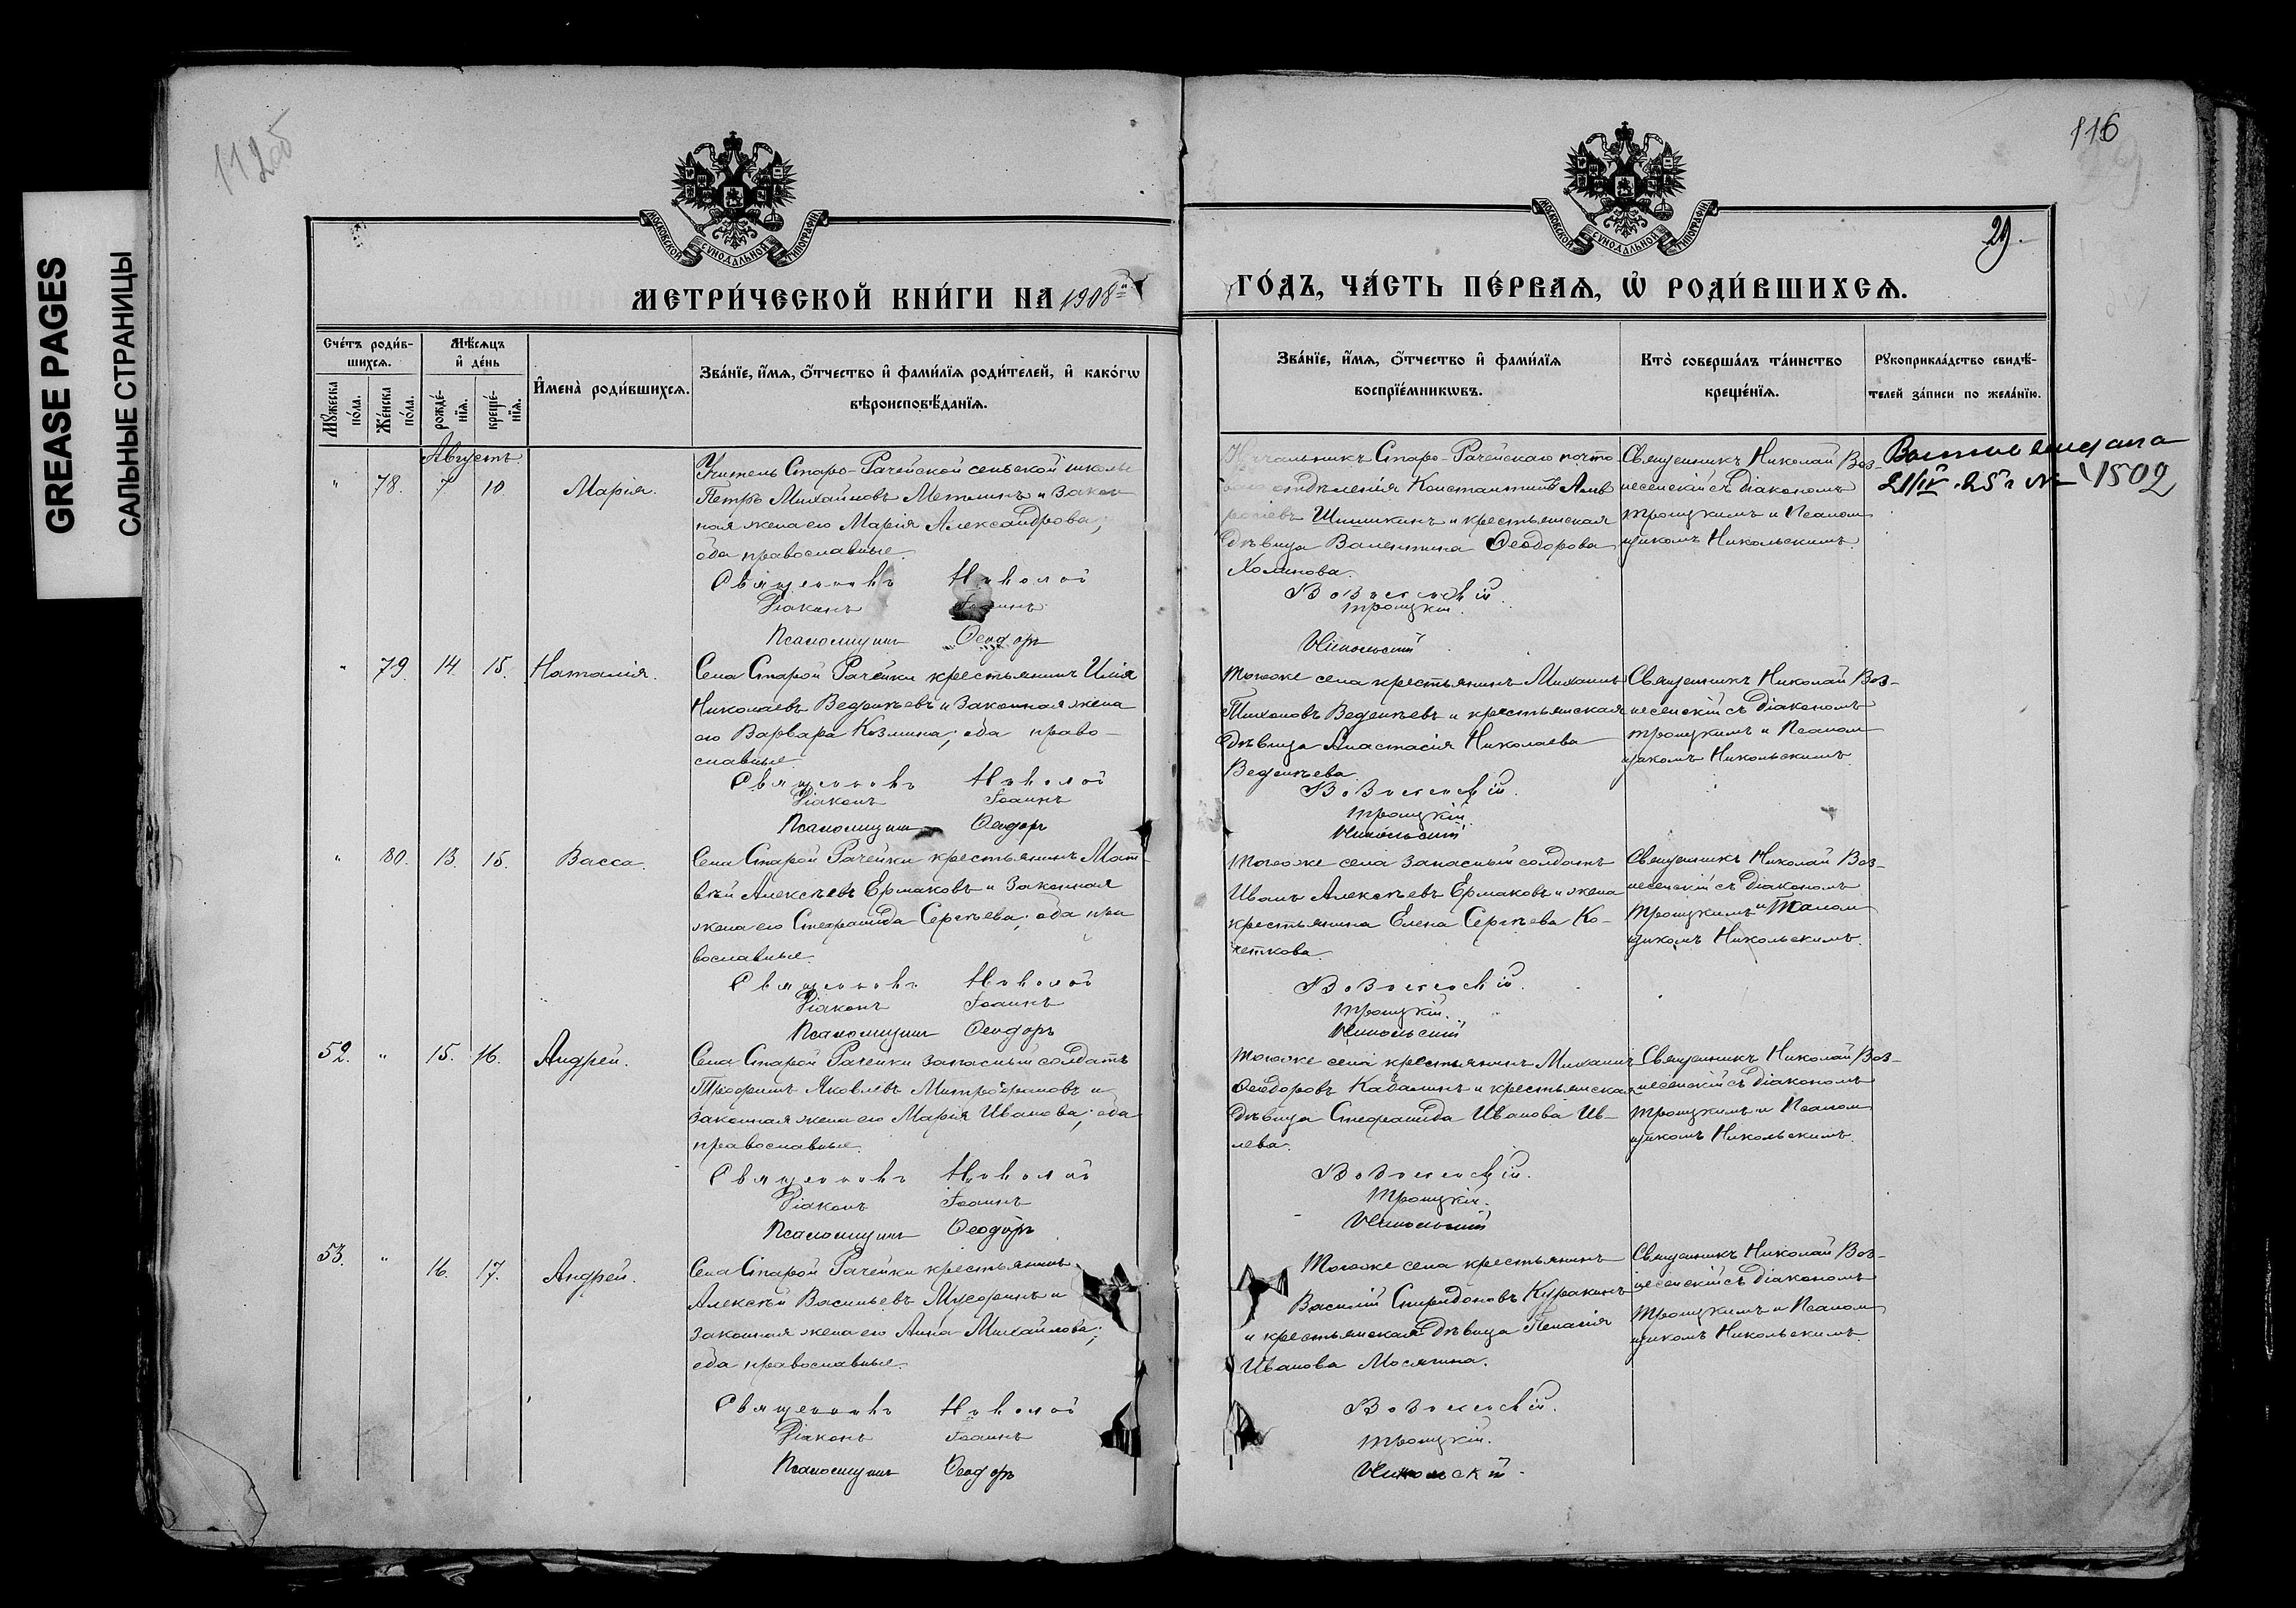 GREASE PAGES
САЛЬНЫЕ СТРАНИЦЫ
116
29.
МОСКОВСКОЙ СУНОДАЛЬНОЙ ТИПОГРАФІИ
МОСКОВСКОЙ СУНОДАЛЬНОЙ ТИПОГРАФІИ
МЕТРИ́ЧЕСКОЙ КНИ́ГИ НА 1908й
ГО́ДЪ, ЧА́СТЬ ПЕ́РВАѦ, Ѡ҆ РОДИ́ВШИХСѦ.
Сче́тъ роди́в-
шихсѧ.
Мꙋ́жеска по́ла.
Же́нска по́ла.
Мѣ́сѧцъ
и҆ де́нь
рожде́-
нїѧ.
креще́-
нїѧ.
И҆мена̀ роди́вшихсѧ.
Зва́нїе, и҆́мѧ, ѻ҆́тчество и҆ фами́лїѧ роди́телей, и҆ како́гѡ
вѣроисповѣ́данїѧ.
Зва́нїе, и҆́мѧ, ѻ҆́тчество и҆ фами́лїѧ
воспрїе́мникѡвъ.
Кто̀ соверша́лъ та́инство
креще́нїѧ.
Рꙋкоприкла́дство свидѣ́-
телей за́писи по жела́нїю.
Августъ
" 78. 7 10 Марія.
Учитель Старо-Рачейской сельской школы
Петръ Михайловъ Метлинъ и закон
ная жена его Марія Александрова;
оба православные.
Священникъ Николай
Діаконъ Іоаннъ
Псаломщикъ Ѳеодоръ
Начальникъ Старо-Рачейскаго почто
отдѣленія Константинъ Амв
росіевъ Шишкинъ и крестьянская
дѣвица Валентина Ѳеодорова
Холинова.
Вознесенскій.
Троицкій.
Никольскій
Священникъ Николай Воз-
несенскій съ діакономъ
Троицкимъ и Псалом
щикомъ Никольскимъ.
выдана
21/IV 25 г № 1502
" 79. 14. 15. Наталія.
Села Старой Рачейки крестьянинъ Илія
Николаевъ Веденѣевъ и законная жена
его Варвара Козмина; оба право-
славные.
Священникъ Николай
Діаконъ Іоаннъ
Псаломщикъ Ѳеодоръ
Тогоже села крестьянинъ Михаилъ
Тихоновъ Веденѣевъ и крестьянская
дѣвица Анастасія Николаева
Веденѣева.
Вознесенскій.
Троицкій.
Никольскій
Священникъ Николай Воз-
несенскій съ діакономъ
Троицкимъ и Псалом
щикомъ Никольскимъ.
" 80. 13. 15. Васса.
Села Старой Рачейки крестьянинъ Мат-
вѣй Алексѣевъ Ермаковъ и законная
жена его Стефанида Сергѣева; оба пра
вославные.
Священникъ Николай
Діаконъ Іоаннъ
Псаломщикъ Ѳеодоръ
Тогоже села запасный солдатъ
Иванъ Алексѣевъ Ермаковъ и жена
крестьянина Елена Сергѣева Ко-
четкова.
Вознесенскій.
Троицкій.
Никольскій
Священникъ Николай Воз-
несенскій съ діакономъ
Троицкимъ и Псалом
щикомъ Никольскимъ.
52. " 15. 16. Андрей.
Села Старой Рачейки запасный солдатъ
Трофимъ Яковлевъ Митрофановъ и
законная жена его Марія Иванова; оба
православные.
Священникъ Николай
Діаконъ Іоаннъ
Псаломщикъ Ѳеодоръ
Тогоже села крестьянинъ Михаилъ
Ѳеодоровъ Кабалинъ и крестьянская
дѣвица Стефанида Иванова Ив-
лева.
Вознесенскій.
Троицкій.
Никольскій
Священникъ Николай Воз-
несенскій съ діакономъ
Троицкимъ и Псалом
щикомъ Никольскимъ.
53. " 16. 17. Андрей.
Села Старой Рачейки крестьянинъ
Алексѣй Васильевъ Мусоринъ и
законная жена его Анна Михайлова;
оба православные.
Священникъ Николай
Діаконъ Іоаннъ
Псаломщикъ Ѳеодоръ
Тогоже села крестьянинъ
Василій Спиридоновъ Куракинъ
и крестьянская дѣвица Пелагія
Иванова Мосягина.
Вознесенскій.
Троицкій.
Никольскій.
Священникъ Николай Воз-
несенскій съ діакономъ
Троицкимъ и Псалом
щикомъ Никольскимъ.